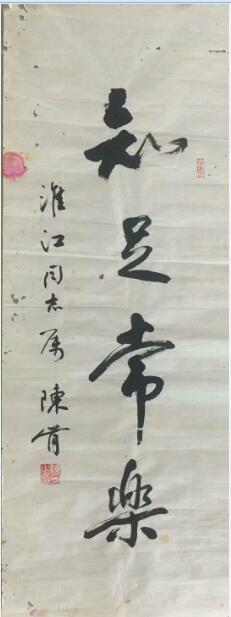 知足常樂
淮江同志属 陳肯